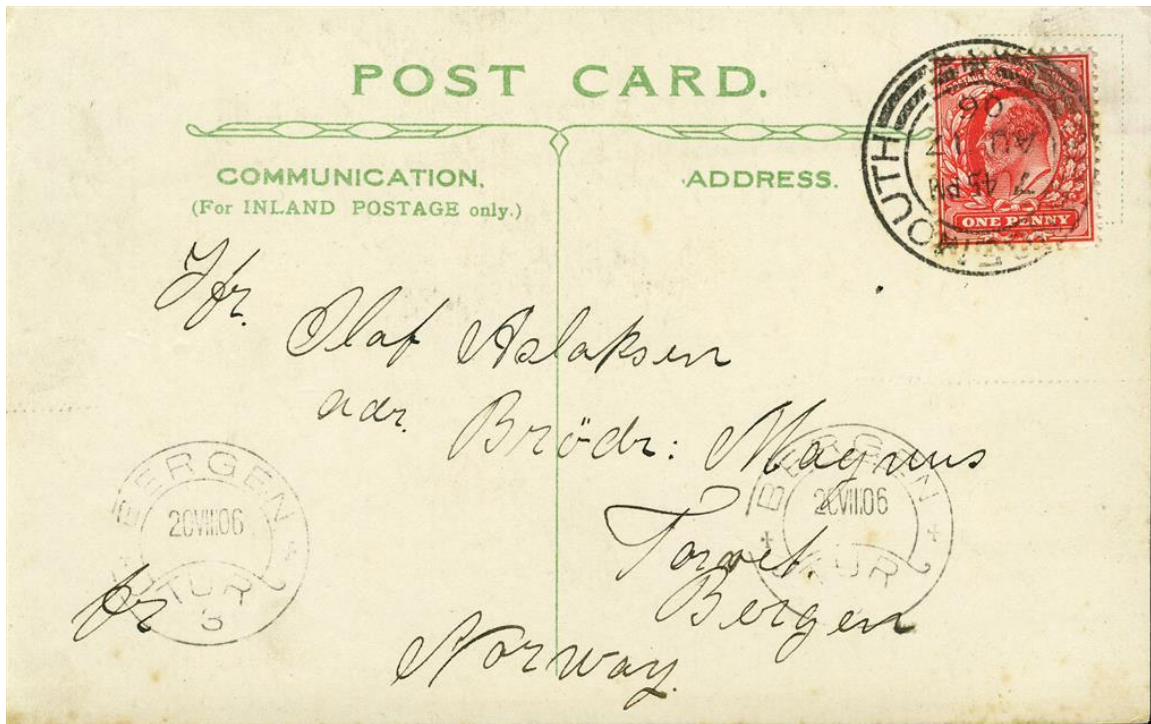 POST CARD.
COMMUNICATION.
(For INLAND POSTAGE only.)
ADDRESS.
7 45 PM
AU 17
06
ONE PENNY
Hr. Olaf Aslaksen
adr. Brödr: Magnus
Torvet.
Bergen
Norway.
BERGEN
20VIII06
TUR
3
BERGEN
20VIII06
TUR